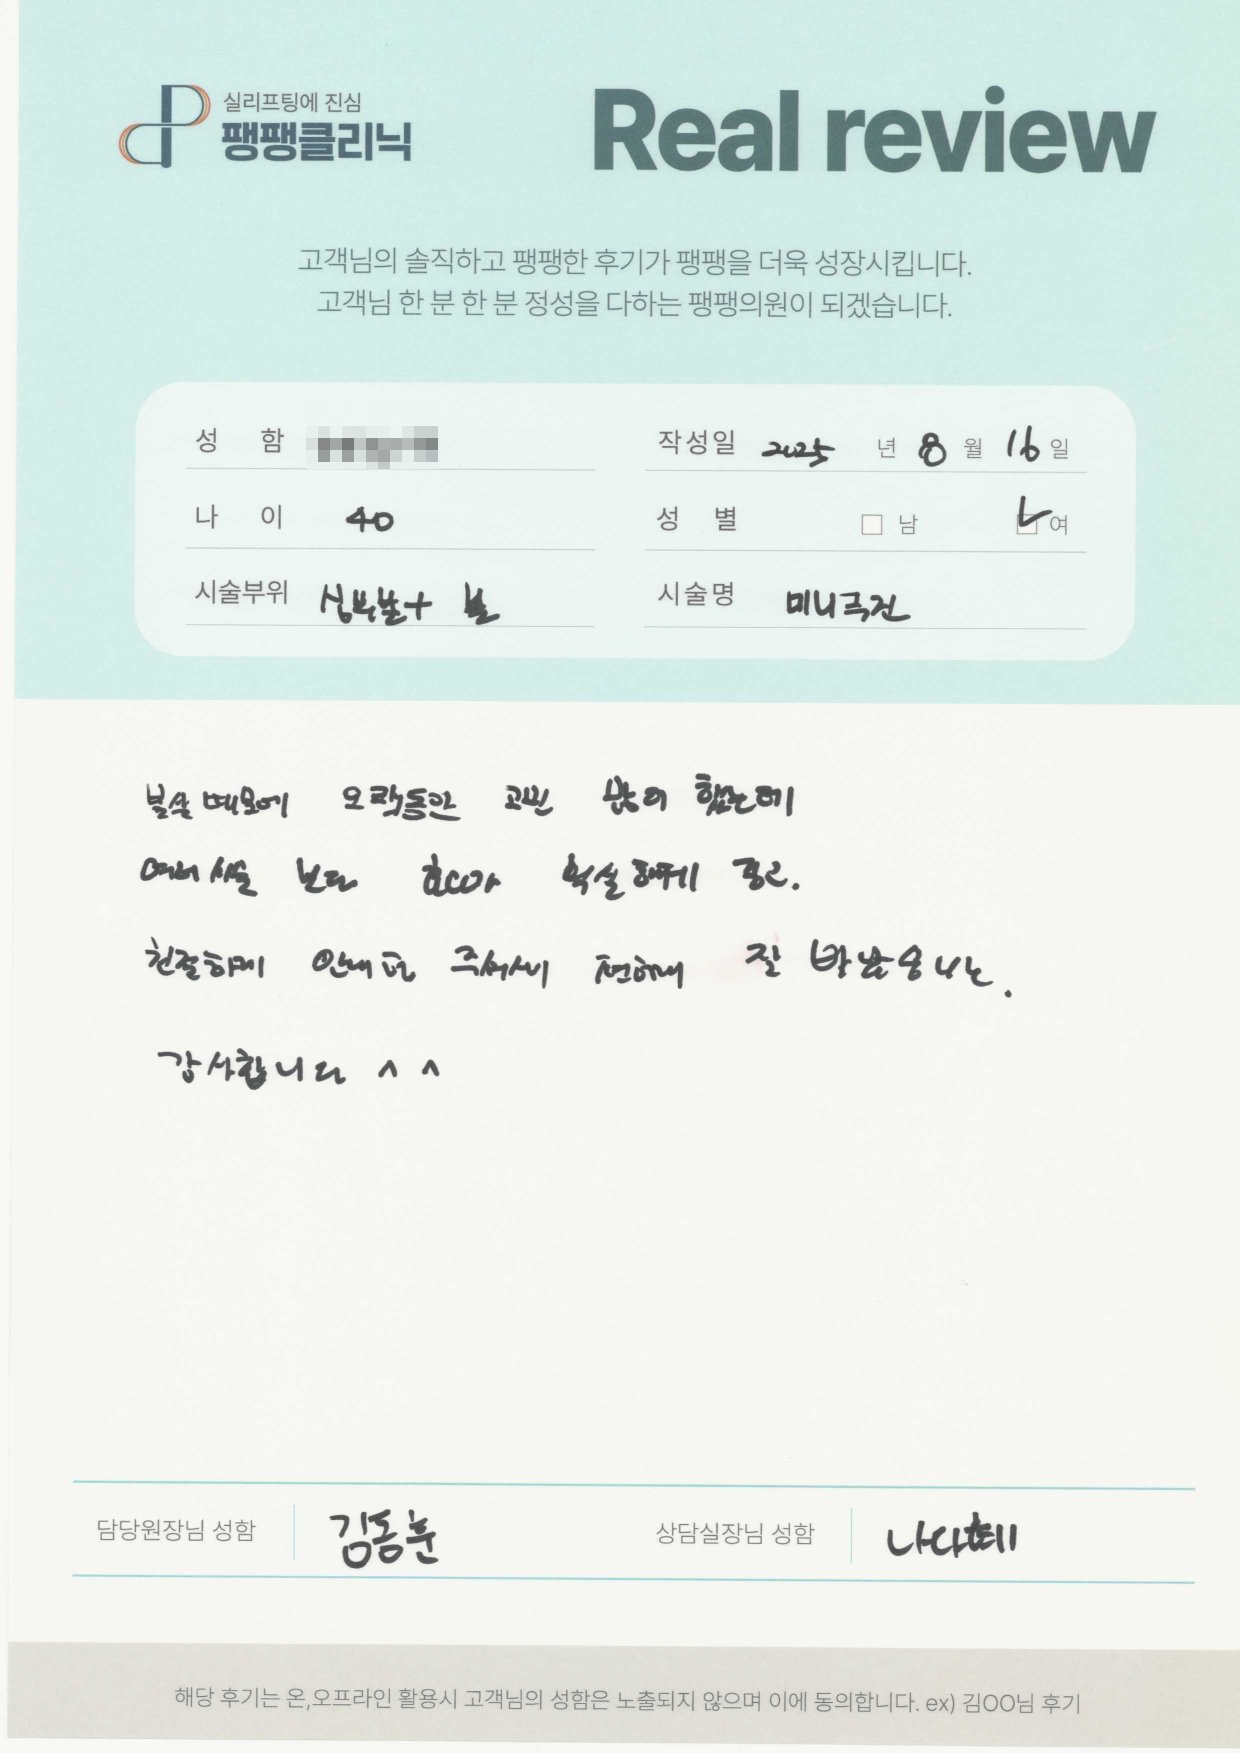 실리프팅에 진심
팽팽클리닉
Real review
고객님의 솔직하고 팽팽한 후기가 팽팽을 더욱 성장시킵니다.
고객님 한 분 한 분 정성을 다하는 팽팽의원이 되겠습니다.
성 함
작성일 2025 년 8 월 16 일
나 이 40
성 별 남 여
시술부위 심부볼+ 볼
시술명 미니거상
볼살 때문에 오랫동안 고민 많이 했는데
여러 시술 보다 효과가 확실하게 좋고.
친절하게 안내 해 주셔서 편하게 잘 받았습니다.
감사합니다 ^ ^
담당원장님 성함 김동훈
상담실장님 성함 나다혜
해당 후기는 온,오프라인 활용시 고객님의 성함은 노출되지 않으며 이에 동의합니다. ex) 김OO님 후기